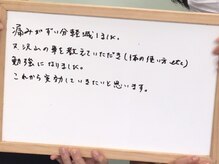 痛みがずい分軽減しました。
又、沢山の事を教えていただき(体の使い方etc)
勉強になりました。
これから実効していきたいと思います。